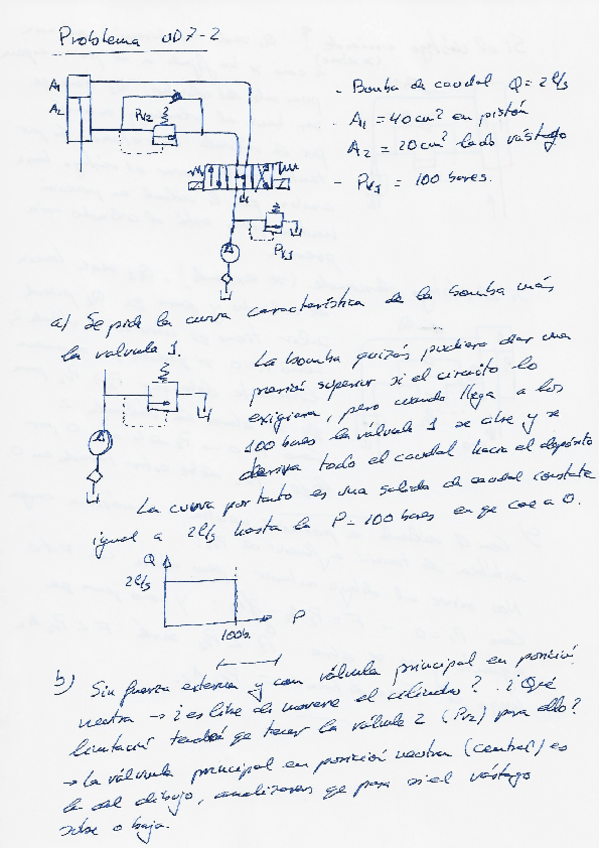 Problema UD7-2
A1
A2
Pv2
Pv1
- Bomba de caudal Q = 2 l/s
- A1 = 40 cm² en pistón
A2 = 20 cm² lado vástago
- Pv1 = 100 bares.
a) Se pide la curva característica de la bomba más
la valvula 1.
La bomba quizás pudiera dar una
presión superior si el circuito lo
exigiera, pero cuando llega a los
100 bares la válvula 1 se abre y se
deriva todo el caudal hacia el depósito
La curva por tanto es una salida de caudal constate
igual a 2 l/s hasta la P = 100 bares en qe cae a 0.
Q
2 l/s
P
100b.
b) Sin fuerza externa y com válvula principal en posición
neutra → ¿es libre de moverse el cilindro? ¿Qué
limitación tendrá qe tener la válvula 2 (Pv2) para ello?
→ La válvula principal en posición neutra (central) es
la del dibujo, analizaras qe pasa si el vástago
sube o baja.